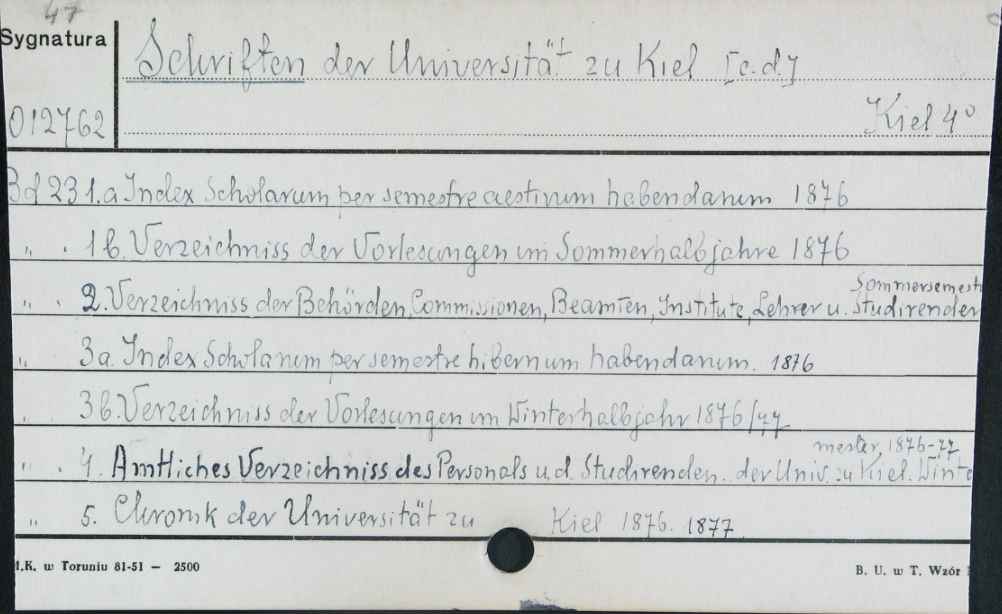 47
Sygnatura
Schriften der Universität zu Kiel [c.d.]
012762
Kiel 4°
Bd 23 1.a Index Scholarum per semestre aestivum habendarum 1876
„ . 1b. Verzeichniss der Vorlesungen im Sommerhalbjahre 1876
Sommersemest
„ . 2. Verzeichniss der Behörden, Commissionen, Beamten, Institute, Lehrer u. Studirenden
„ 3a. Index Scholarum per semestre hibernum habendarum. 1876
3b. Verzeichniss der Vorlesungen im Winterhalbjahr 1876/77
mester, 1876-77
„ . 4. Amtliches Verzeichniss des Personals u. d. Studirenden. der Univ. zu Kiel. Winte
„ 5. Chronik der Universität zu Kiel 1876. 1877
.K. w Toruniu 81-51 — 2500
B. U. w T. Wzór